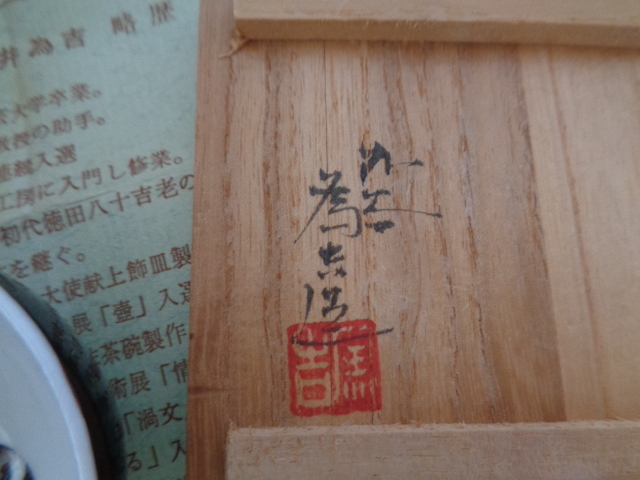 井為吉 略歴
大学卒業。
教授の助手。
入選
工房に入門し修業。
初代徳田八十吉老の
を継ぐ。
大使献上飾皿製
展「壺」入選
茶碗製作
術展「情
「渦文
る」入
為吉造
為吉